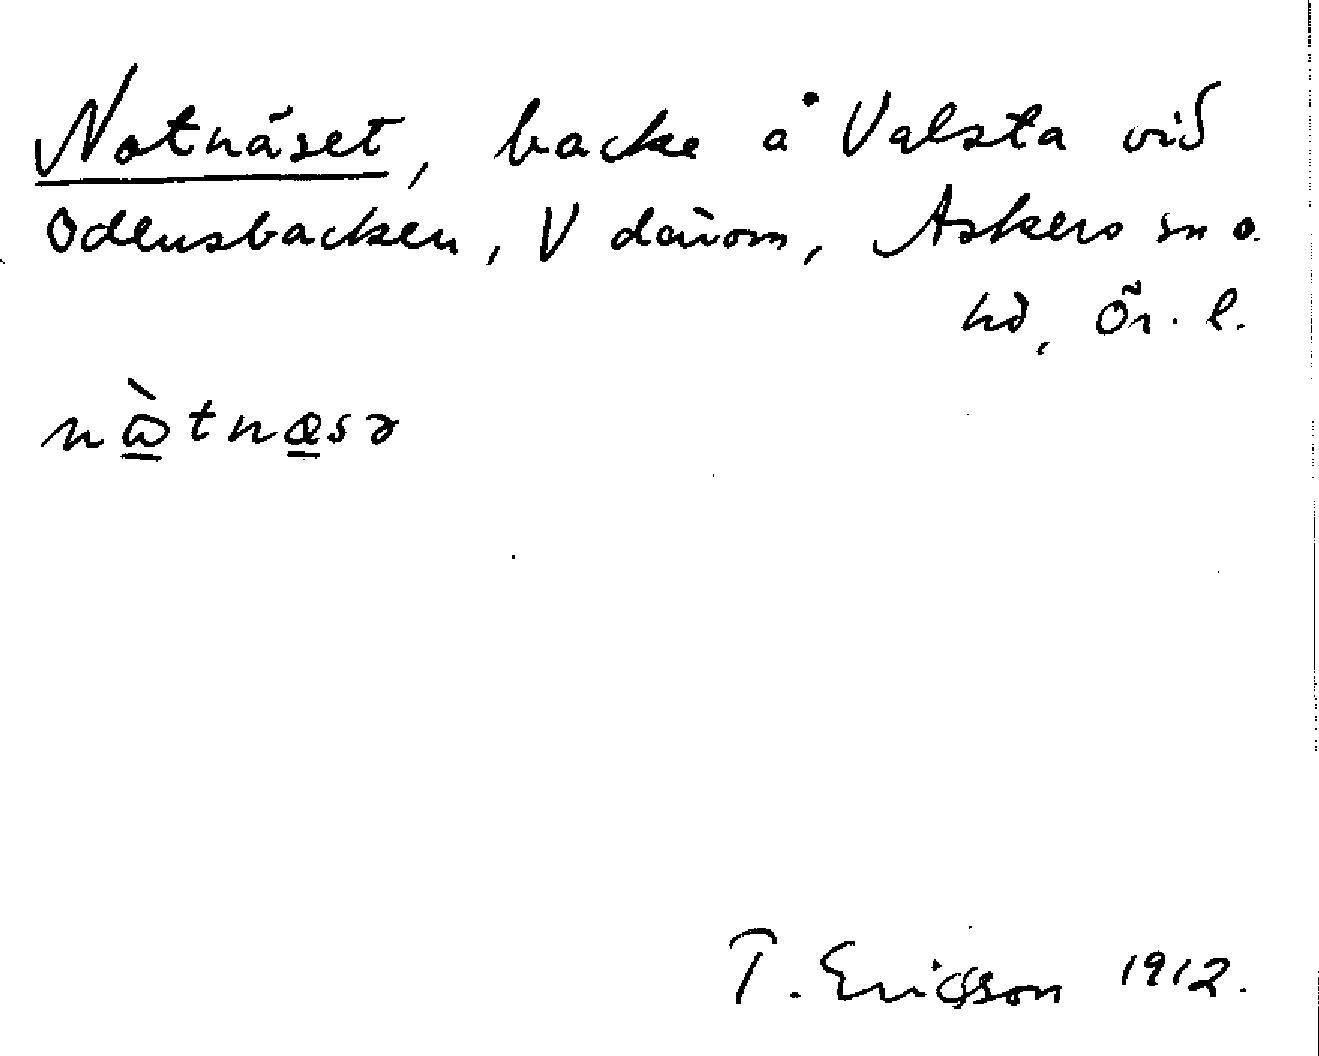 Notnäset, backe å Valsta vid
Odensbacken, V därom, Askers sn o.
hd, Ör. l.
nɷ̀tnæsə
T. Ericsson 1912.